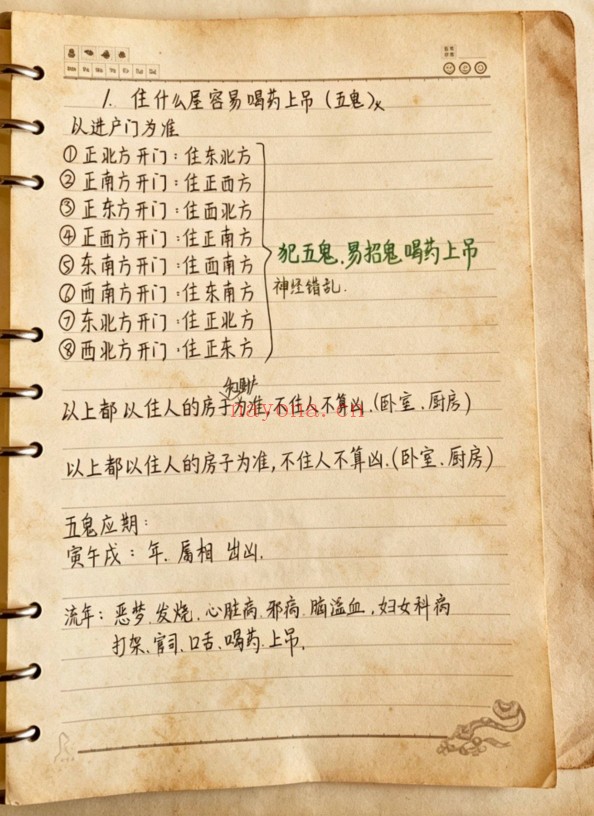 1. 住什么屋容易喝药上吊(五鬼)
以进户门为准
①正北方开门:住东北方
②正南方开门:住正西方
③正东方开门:住西北方
④正西方开门:住正南方
⑤东南方开门:住西南方
⑥西南方开门:住东南方
⑦东北方开门:住正北方
⑧西北方开门:住正东方
犯五鬼.易招鬼喝药上吊
神经错乱.
以上都以住人的房子为准,不住人不算凶.(卧室.厨房)
nayona.cn
以上都以住人的房子为准,不住人不算凶.(卧室.厨房)
五鬼应期:
寅午戌:年.属相 出凶.
流年:恶梦.发烧.心脏病.邪病.脑溢血.妇女科病
打架.官司.口舌.喝药.上吊.